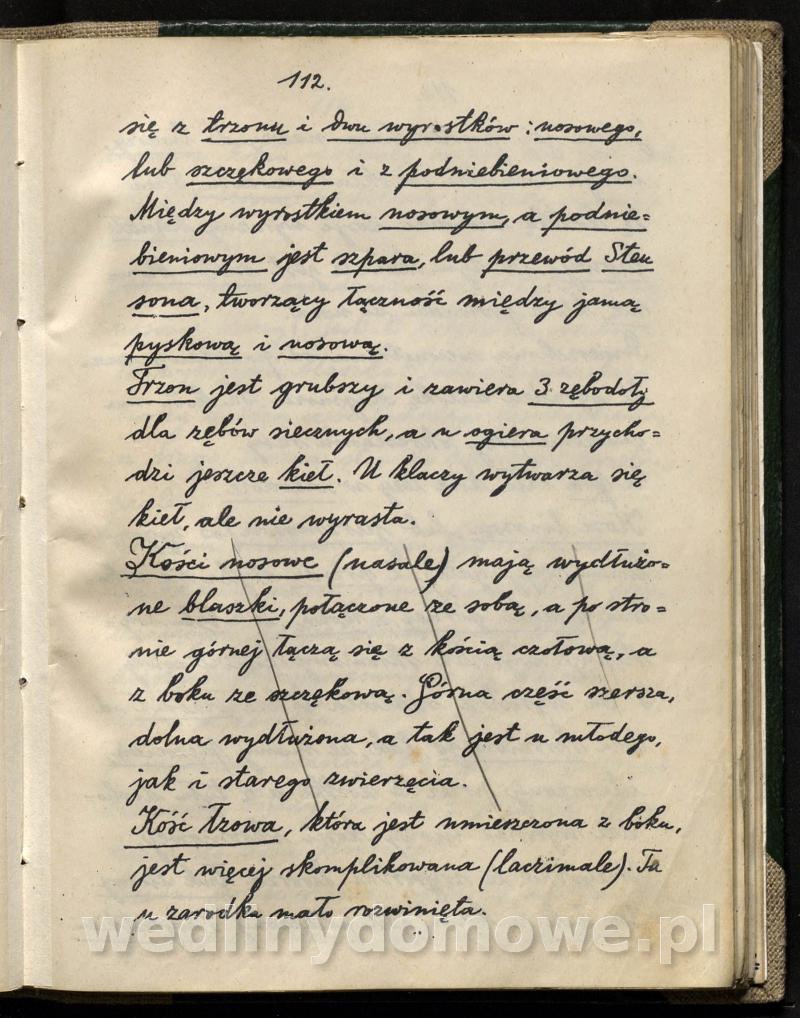 112.
się z trzonu i dwu wyrostków : nosowego,
lub szczękowego i z podniebieniowego.
Między wyrostkiem nosowym, a podnie=
bieniowym jest szpara, lub przewód Sten
sona, tworzący łączność między jamą
pyskową i nosową.
Trzon jest grubszy i zawiera 3 zębodoły
dla zębów siecznych, a u ogiera przycho=
dzi jeszcze kieł. U klaczy wytwarza się
kieł, ale nie wyrasta.
Kości nosowe (nasale) mają wydłużo=
ne blaszki, połączone ze sobą, a po stro=
nie górnej łączą się z kością czołową, a
z boku ze szczękową. Górna część szersza,
dolna wydłużona, a tak jest u młodego,
jak i starego zwierzęcia.
Kość łzowa, która jest umieszczona z boku,
jest więcej skomplikowana (laczimale). Ta
u zarodka mało rozwinięta.
wedlinydomowe.pl